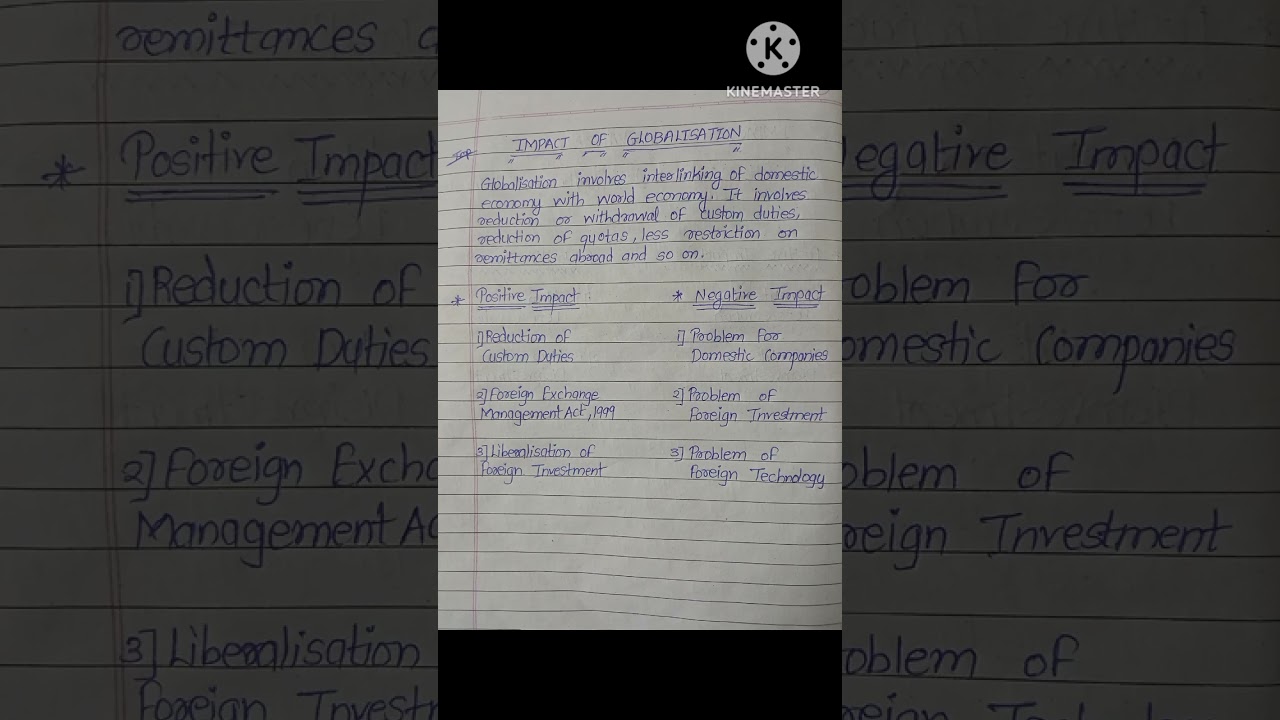 KINEMASTER
IMPACT OF GLOBALISATION
Globalisation involves interlinking of domestic
economy with world economy. It involves
reduction or withdrawal of custom duties,
reduction of quotas, less restriction on
remittances abroad and so on.
* Positive Impact * Negative Impact
1] Reduction of 1] Problem For
Custom Duties Domestic Companies
2] Foreign Exchange 2] Problem of
Management Act, 1999 Foreign Investment
3] Liberalisation of 3] Problem of
Foreign Investment Foreign Technology